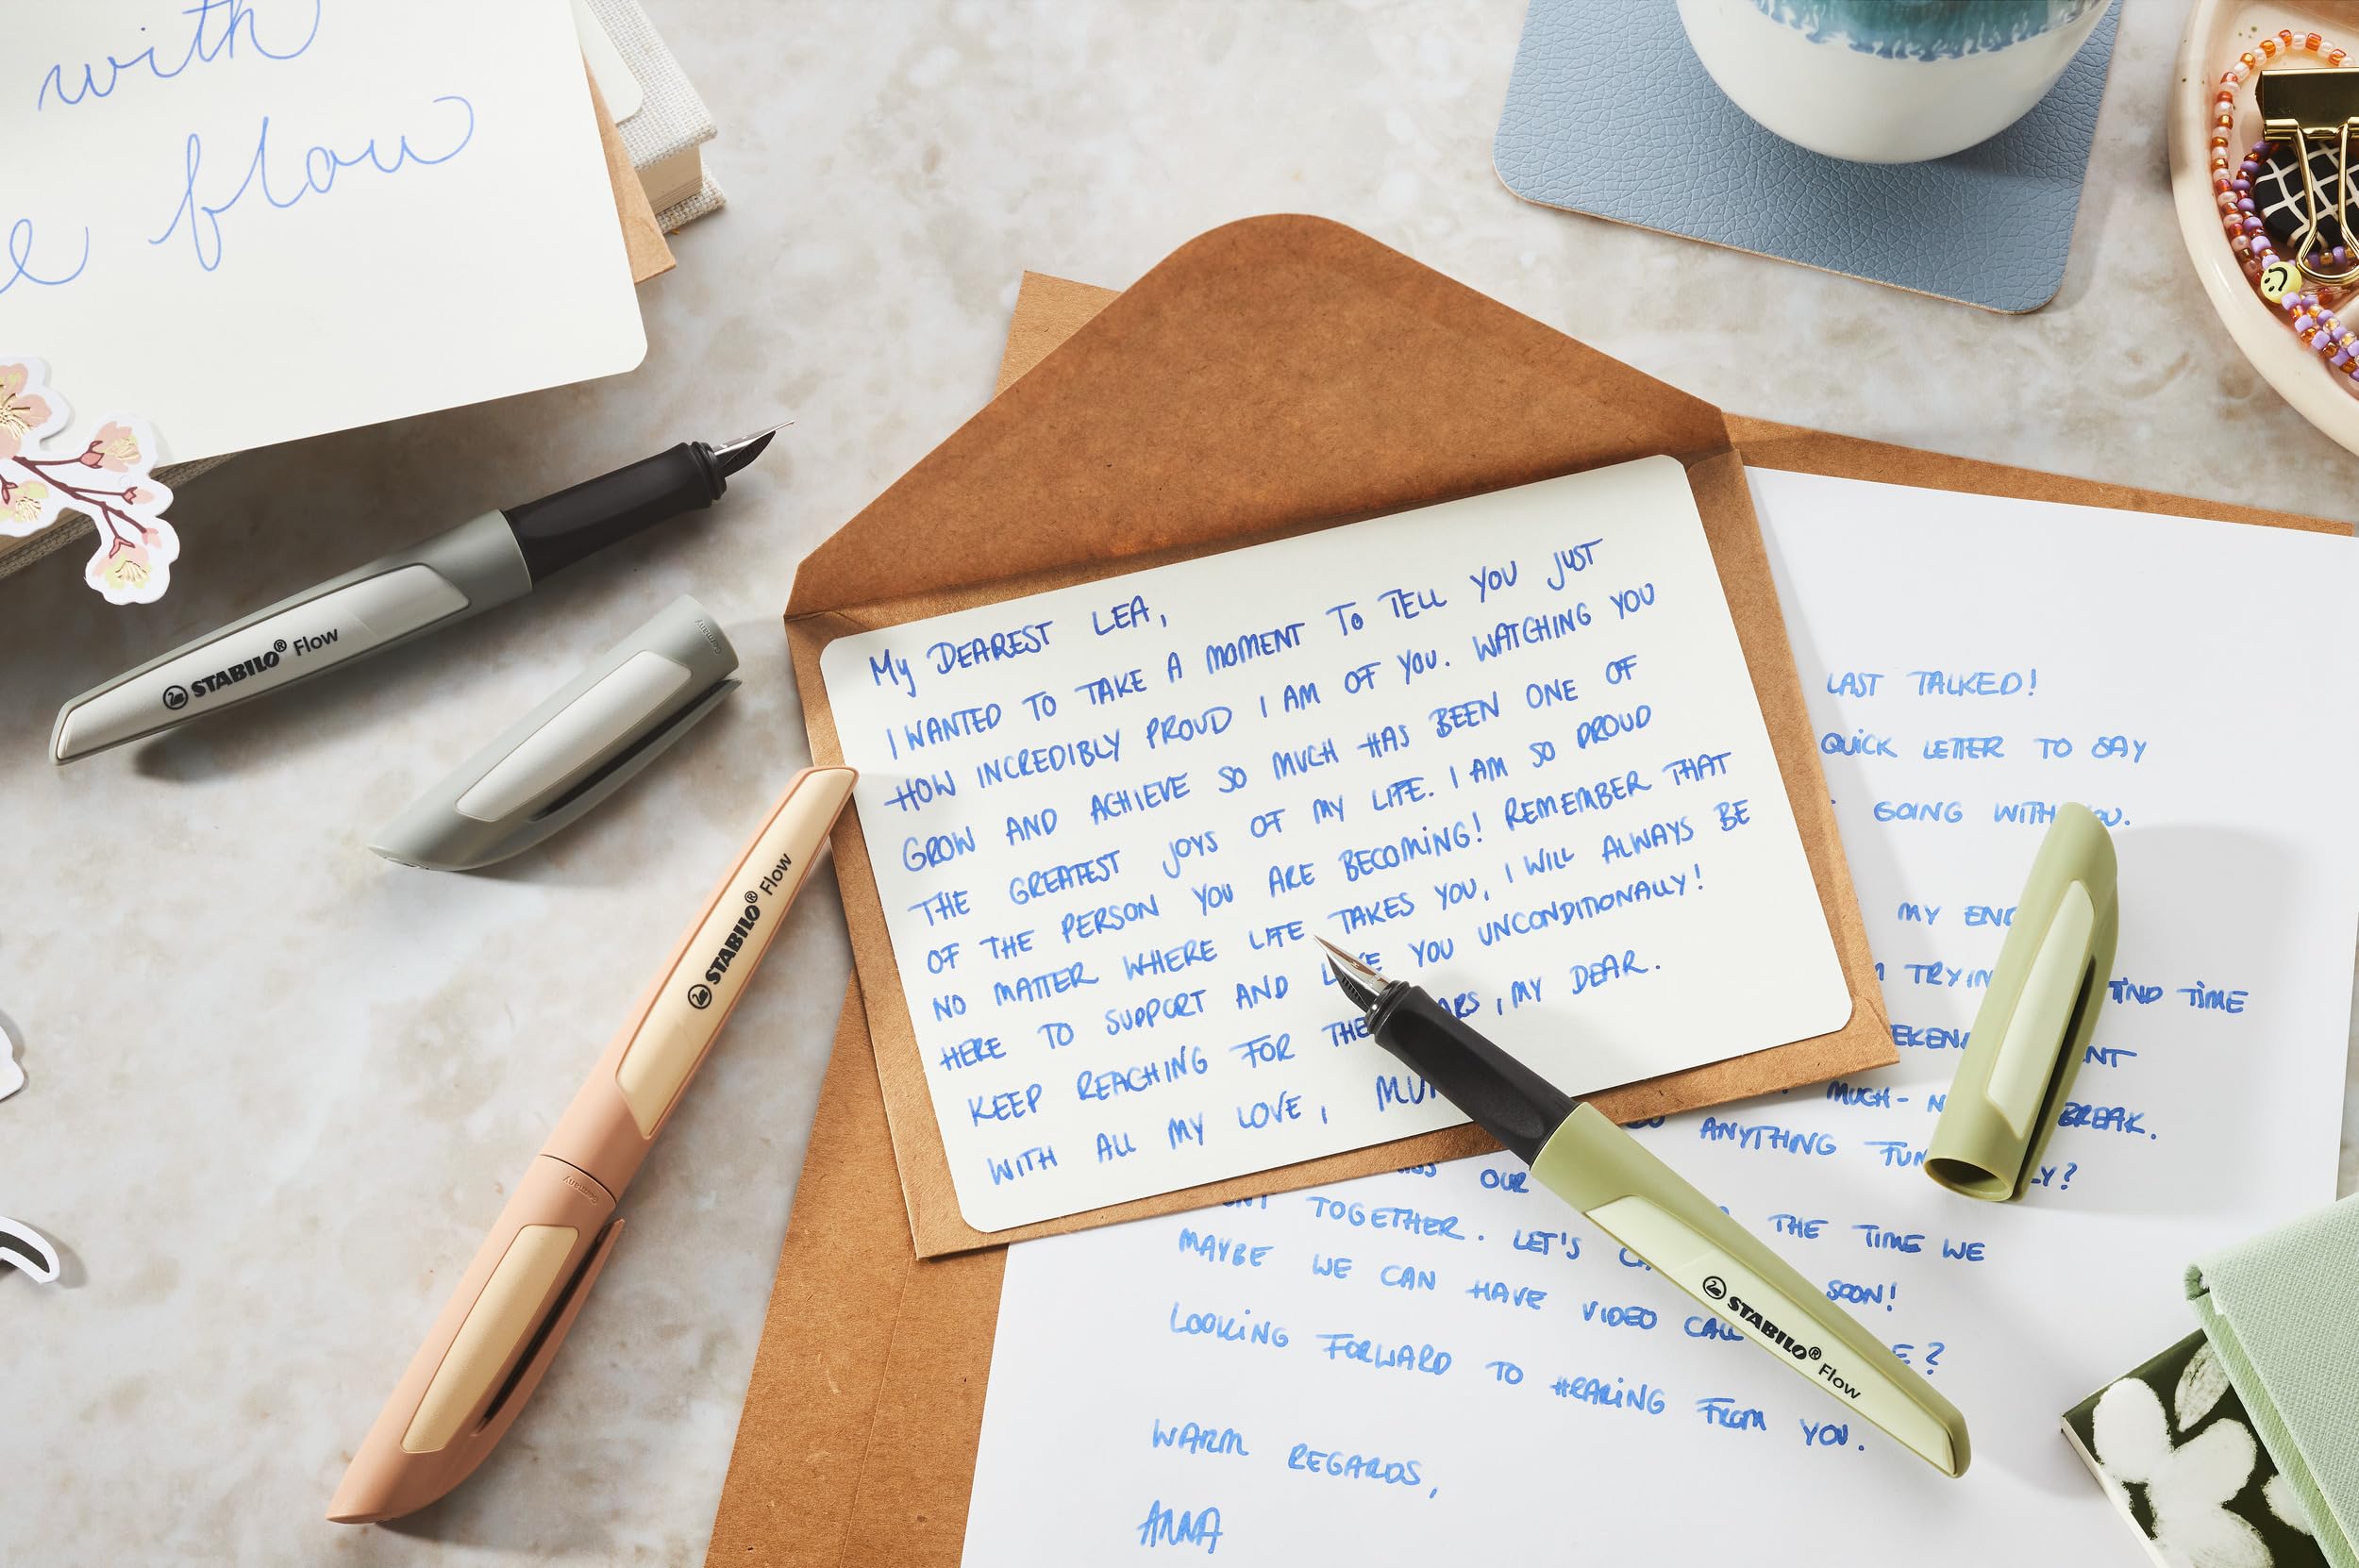 with
flow
STABILO® Flow
Germany
STABILO® Flow
Germany
MY DEAREST LEA,
I WANTED TO TAKE A MOMENT TO TELL YOU JUST
HOW INCREDIBLY PROUD I AM OF YOU. WATCHING YOU
GROW AND ACHIEVE SO MUCH HAS BEEN ONE OF
THE GREATEST JOYS OF MY LIFE. I AM SO PROUD
OF THE PERSON YOU ARE BECOMING! REMEMBER THAT
NO MATTER WHERE LIFE TAKES YOU, I WILL ALWAYS BE
HERE TO SUPPORT AND YOU UNCONDITIONALLY!
KEEP REACHING FOR THE , MY DEAR.
WITH ALL MY LOVE,
LAST TALKED!
QUICK LETTER TO SAY
GOING WITH
MY
TIME
MUCH- BREAK.
ANYTHING
OUR
TOGETHER. LET'S THE TIME WE
SOON!
MAYBE WE CAN HAVE VIDEO CALL ?
LOOKING FORWARD TO HEARING FROM YOU.
WARM REGARDS,
ANNA
STABILO® Flow